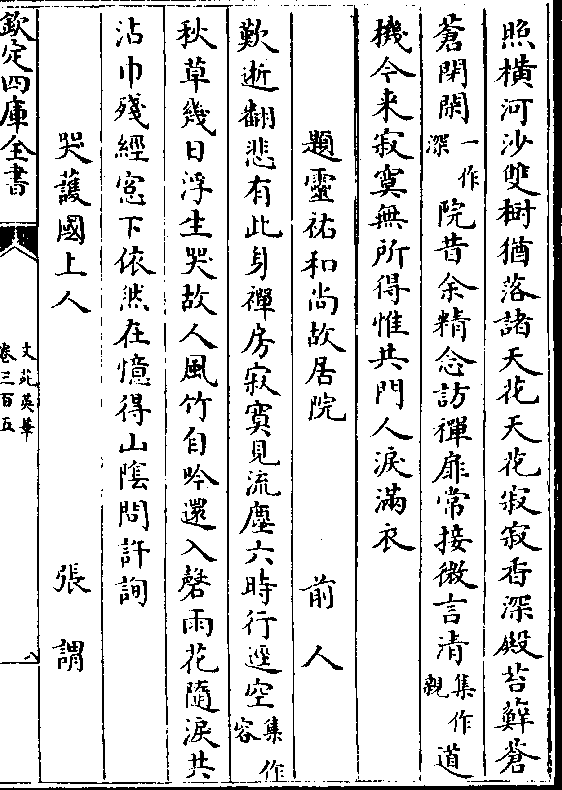 照横河沙雙樹猶落諸天花天花寂寂香深殿苔蘚蒼
蒼閉閑一作深院昔余精念訪禪扉常接微言清集作親道
機今来寂寞無所得惟共門人淚滿衣
題靈祐和尚故居院 前人
歎逝翻悲有此身禪房寂寞見流塵六時行逕空集作容
秋草幾日浮生哭故人風竹自吟還入磬雨花隨淚共
沾巾殘經窓下依然在憶得山陰問許詢
哭護國上人 張謂
欽定四庫全書
文苑英華
卷三百五
八